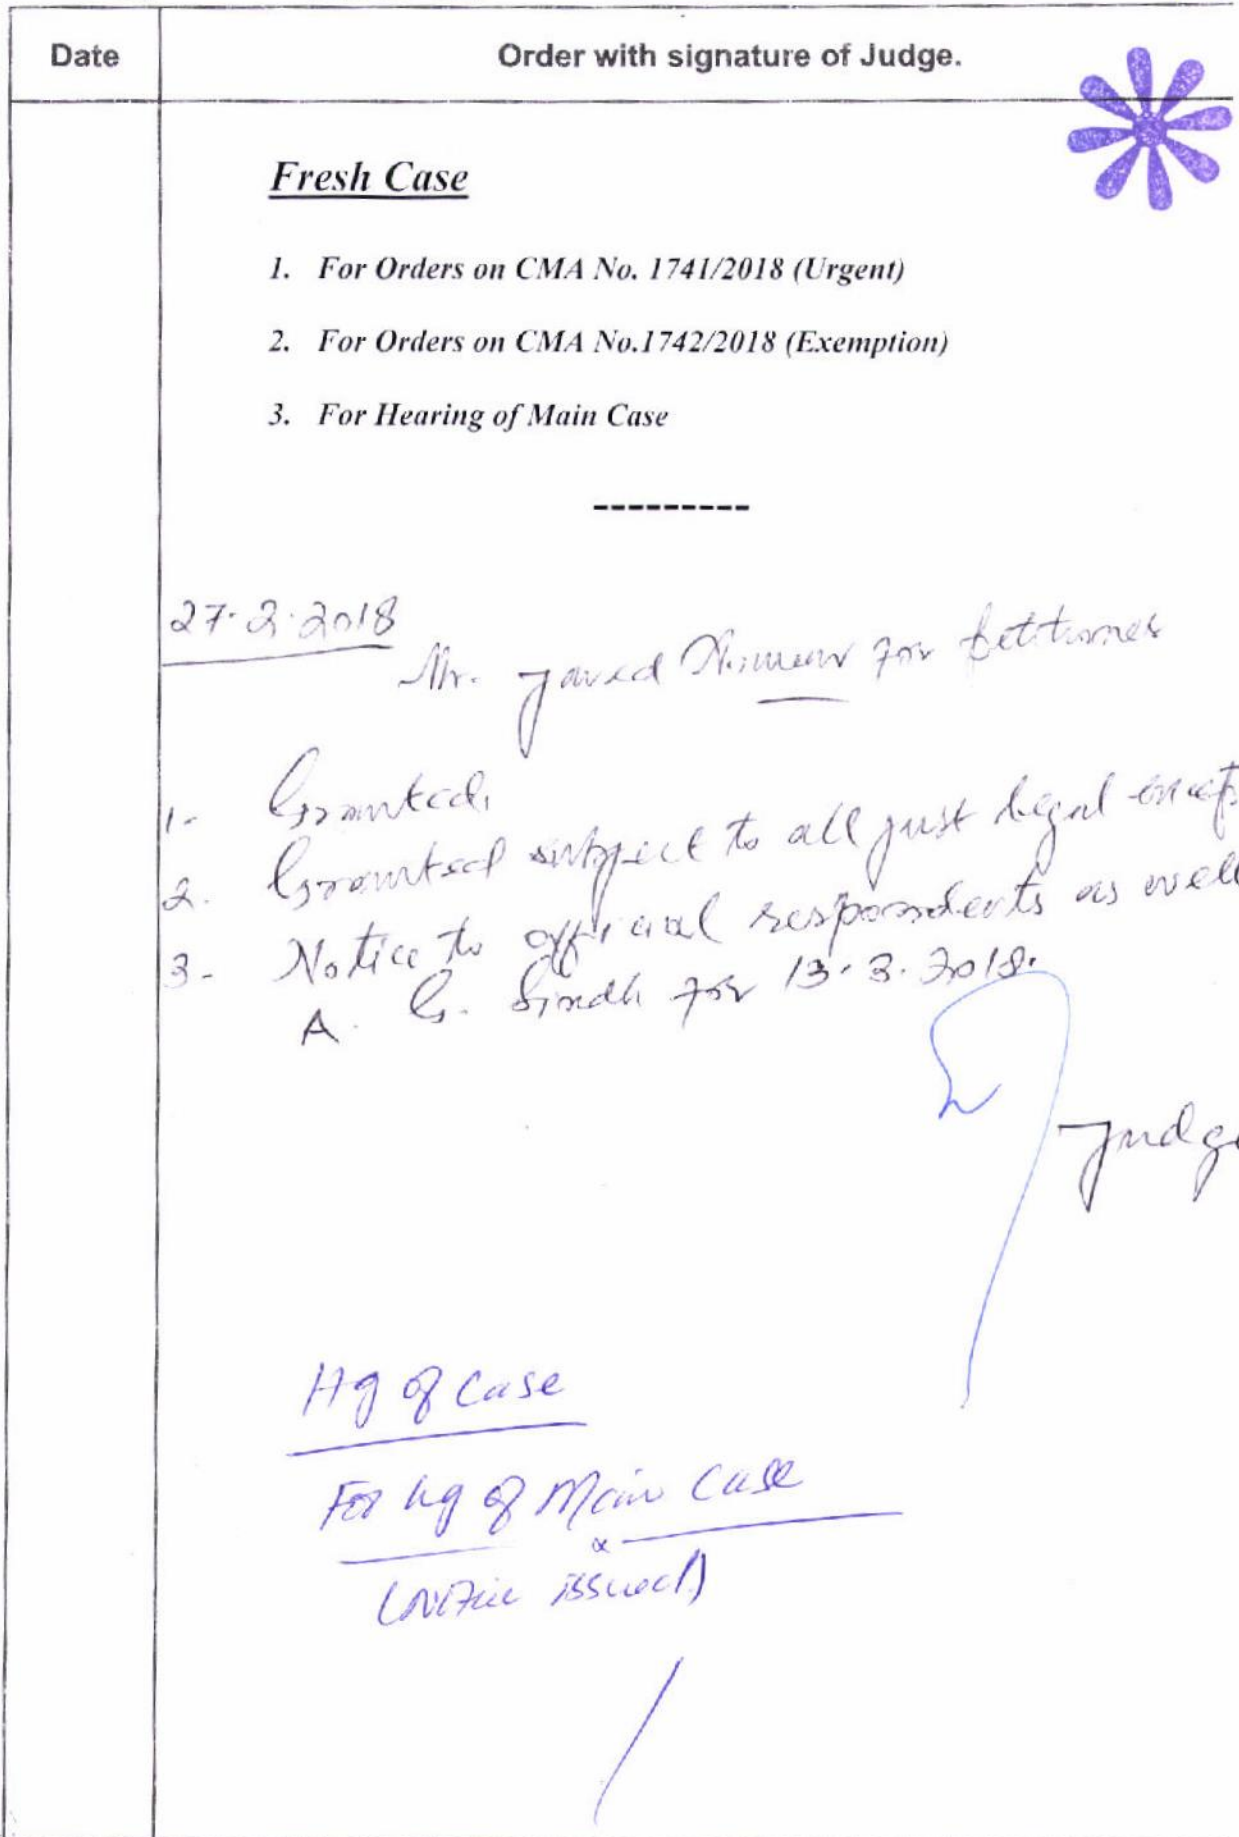 Date Order with signature of Judge.
Fresh Case
1. For Orders on CMA No. 1741/2018 (Urgent)
2. For Orders on CMA No.1742/2018 (Exemption)
3. For Hearing of Main Case
---------
27.2.2018
Mr. Javed for Petitioner
1- Granted.
2. Granted subject to all just legal
3- Notice to official respondents as well
A. G. Sindh for 13.3.2018.
Judge
Hg of Case
For hg of Main Case
(Notice issued)